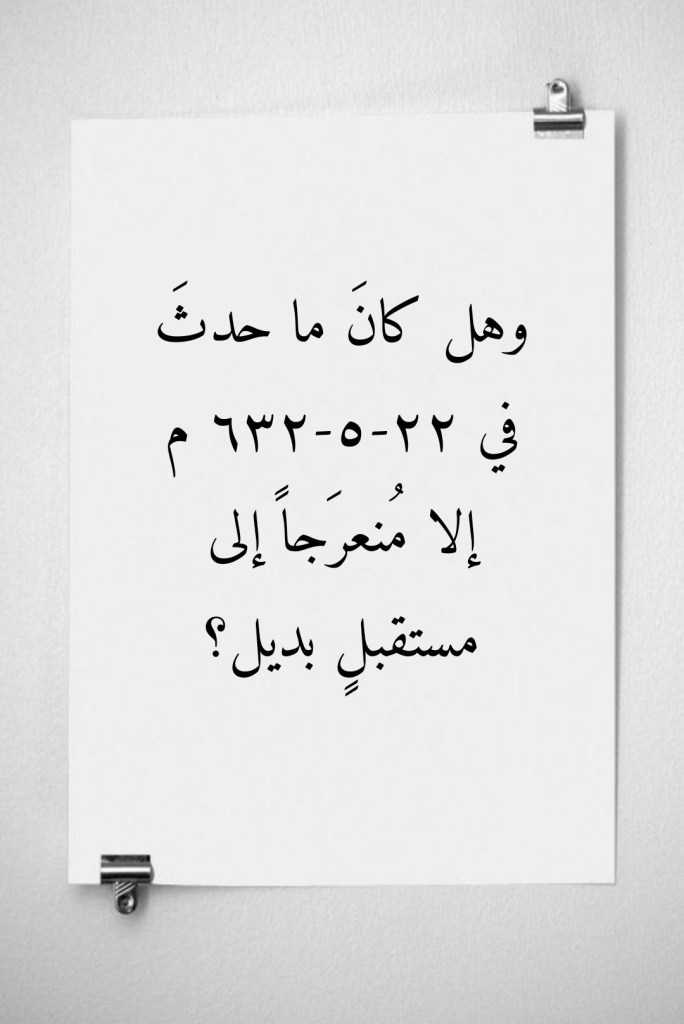 وهل كانَ ما حدثَ
في ٢٢-٥-٦٣٢ م
إلا مُنعرَجاً إلى
مستقبلٍ بديل؟